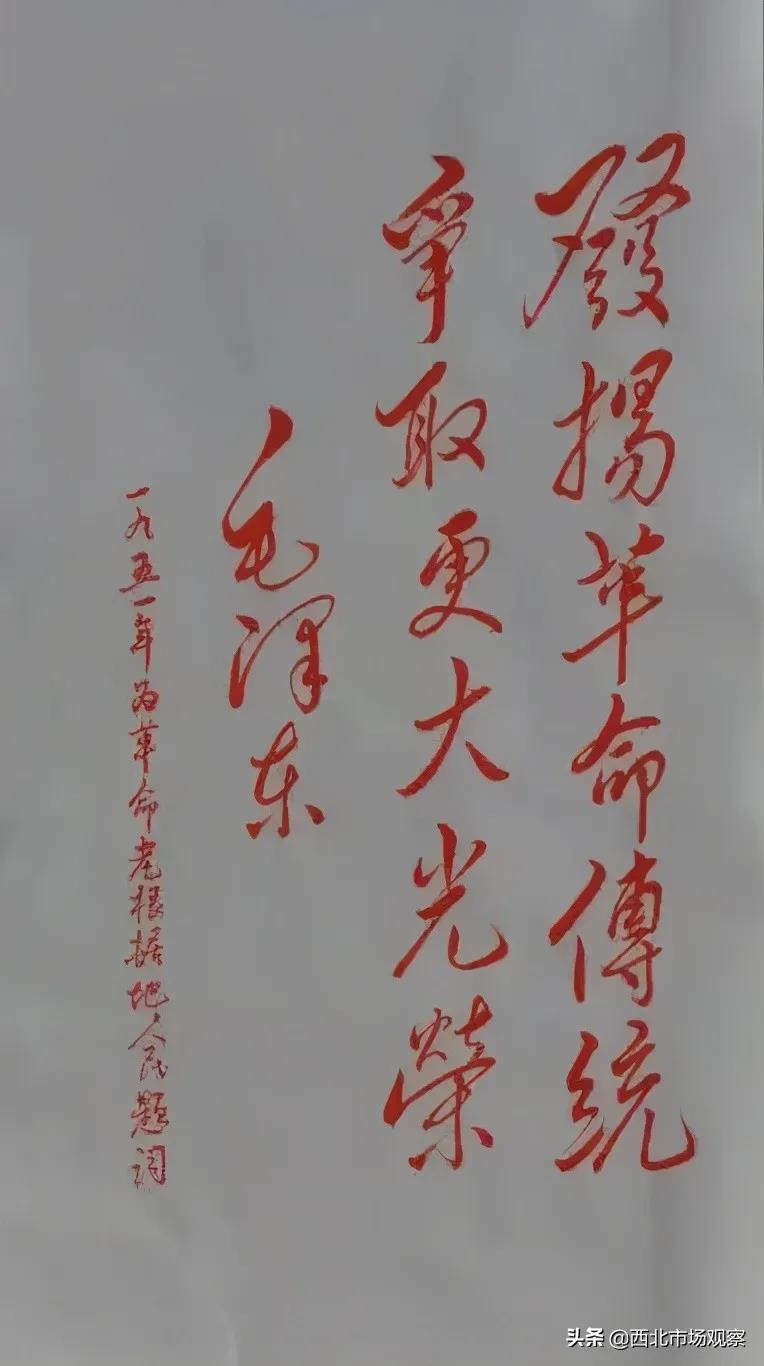 發揚革命傳統
爭取更大光榮
毛澤东
一九五一年为革命老根据地人民题词
头条 @西北市场观察